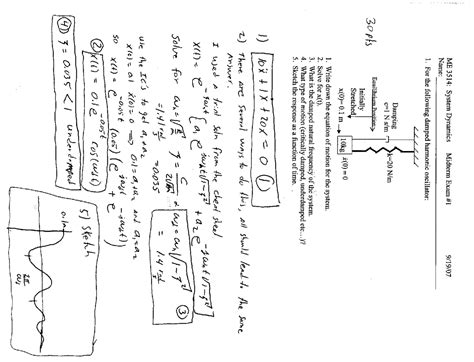 ME 3514: System Dynamics Midterm Exam #1 9/19/07
Name:
1. For the following damped harmonic oscillator:
30 pts
Damping
c=1 N s/m
k=20 N/m
Equilibrium Position
Initially
Stretched
x(0)= 0.1 m
10kg
ẋ(0) = 0
1. Write down the equation of motion for the system.
2. Solve for x(t).
3. What is the damped natural frequency of the system.
4. What type of motion (critically damped, underdamped etc…)?
5. Sketch the response as a function of time.
1) 10ẍ + 1ẋ + 20x = 0 ①
2) There are several ways to do this, all should lead to the same
Answer.
I used a trial soln from the cheat sheet
x(t) = e^-ζωnt [a1 e^iωnt√1-ζ² + a2 e^-iωnt√1-ζ²]
Solve for ωn = √k/m = 1.41 rad/s
ζ = c/2√km = 0.035
ωd = ωn√1-ζ² = 1.4 rad/s ③
Use the IC's to get a1, a2
x(0) = 0.1 ẋ(0) = 0 ⇒ 0.1 = a1 + a2 and a1 = a2
so x(t) = e^-0.05t (0.05)(e^iωdt + e^-iωdt)
② x(t) = 0.1 e^-0.05t cos(ωdt)
④ ζ = 0.035 < 1 underdamped
5) Sketch
0.1m
2π/ωd